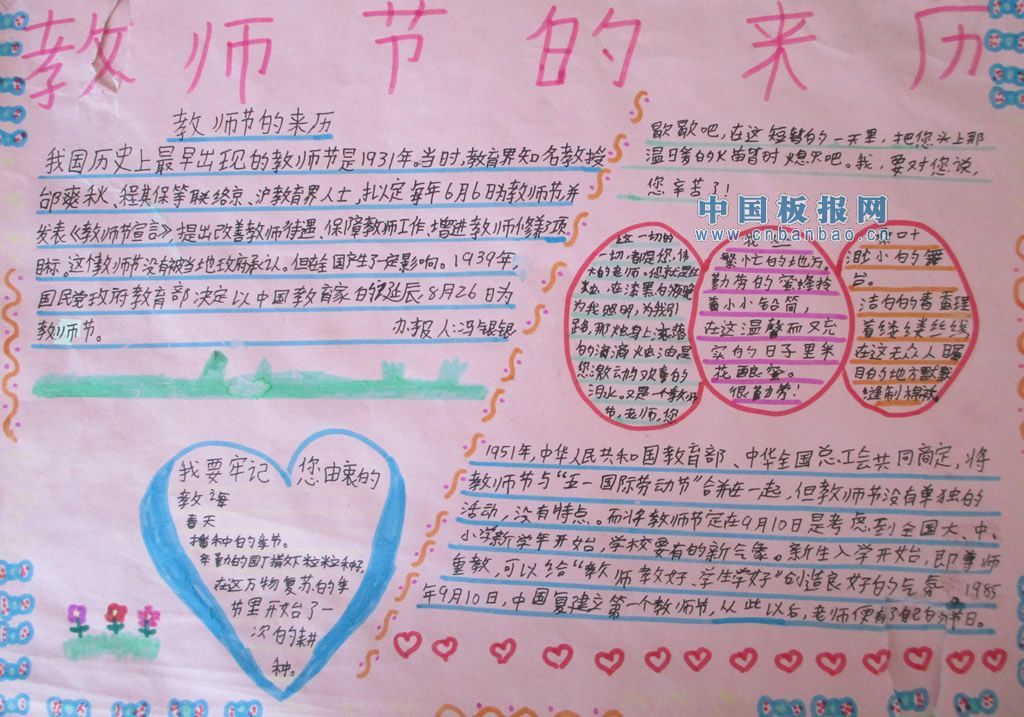 教师节的来历
教师节的来历
我国历史上最早出现的教师节是1931年。当时,教育界知名教授
邰爽秋、程其保等联络京、沪教育界人士,扎以定每年6月6日为教师节,并
发表《教师节宣言》,提出改善教师待遇、保障教师工作、增进教师修养3项
目标。这个教师节没有被当地政府承认。但在全国产生了一定影响。1939年,
国民党政府教育部决定以中国教育家的诞辰8月26日为
教师节。
办报人:冯银银
歇歇吧,在这短暂的一天里,把您头上那
温暖的火苗暂时熄灭吧。我,要对您说,
您辛苦了!
中国板报网
www.cnbanbao.cn
这一切的
一切,都是您,伟
大的老师。您就是红
烛,在漆黑的夜晚
为我照明,为我引
路,那烛身上滚落
的滴滴烛油是
您激动的欢喜的
泪水。又是一个教师
节,老师,您
繁忙的地方。
勤劳的蜜蜂拎
着小小铅筒,
在这温馨而又充
实的日子里采
花酿蜜。
很勤劳!
小的舞
台。
洁白的春蚕理
着缕缕丝线
在这无众人瞩
目的地方默默
缝制棉袄。
我要牢记 您由衷的
教诲
春天
播种的季节。
辛勤的园丁播下粒粒种子,
在这万物复苏的季
节里开始了一
次的耕
种。
1951年,中华人民共和国教育部、中华全国总工会共同商定,将
教师节与“五一国际劳动节”合并在一起,但教师节没有单独的
活动,没有特点。而将教师节定在9月10日是考虑到全国大、中、
小学新学年开始,学校要有的新气象。新生入学开始,即尊师
重教,可以给“教师教好、学生学好”创造良好的气氛。1985
年9月10日,中国复建立第一个教师节,从此以后,老师便有了自己的节日。